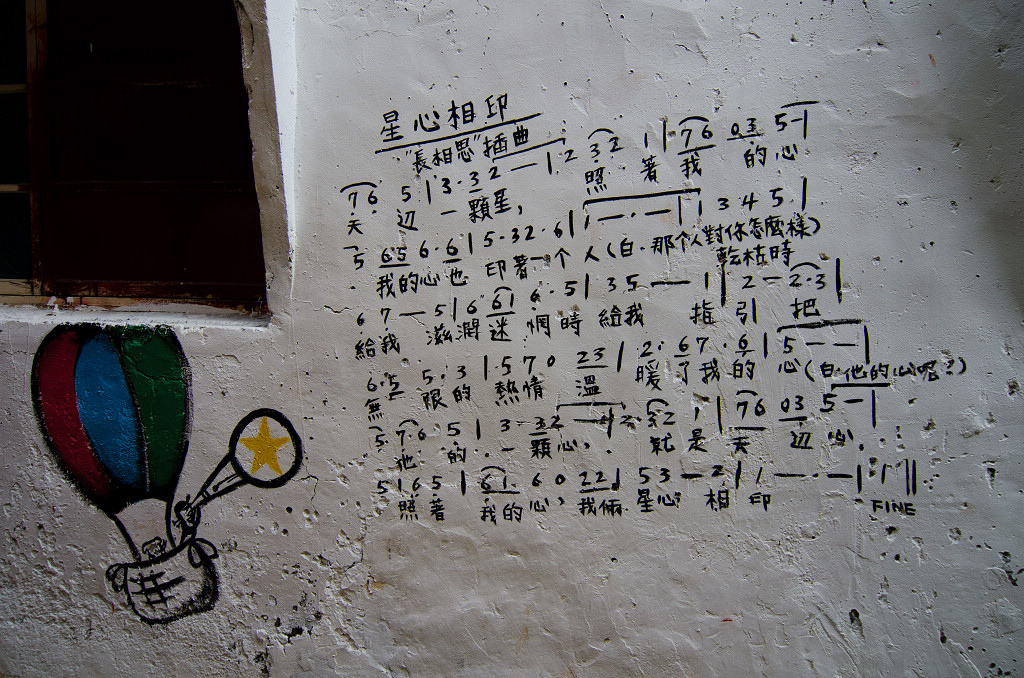 星心相印
"長相思"插曲
76 5 | 3·32 — | 2 32 1 | 76 03 5 — |
天 边 一 顆星, 照 著 我 的 心
5 65 6·6 | 5·32·6 | 1 — · — | 1 3 4 5 |
我的心也 印著一个 人(白·那个人對你怎麼樣)
乾枯時
6 7 — 5 | 6 61 6·5 | 35 — — 1 | 2 — 2·3 |
給我 滋潤 迷惘時 給我 指引 把
6·5 5·3 | 570 23 | 2·67·6 | 5 — — |
無 限的 熱情 溫 暖了我的 心(白·他的心呢?)
5 76 5 | 3·32 — | 2·32 1 | 76 03 5 — |
他 的 一 顆心, 就 是 天 边
5165 | 61 60 22 | 53 — 2 | 1 — — — |
照著 我的心, 我倆 星心 相 印
FINE